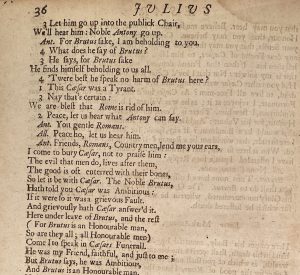 36 JULIUS
3 Let him go up into the publick Chair,
We'll hear him: Noble Antony go up.
Ant. For Brutus sake, I am beholding to you.
4 What does he say of Brutus?
3 He says, for Brutus sake
He finds himself beholding to us all.
4 'Twere best he speak no harm of Brutus here?
1 This Cæsar was a Tyrant.
3 Nay that's certain:
We are blest that Rome is rid of him.
2 Peace, let us hear what Antony can say.
Ant. You gentle Romans.
All. Peace ho, let us hear him.
Ant. Friends, Romans, Countrymen, lend me your ears,
I come to bury Cæsar, not to praise him:
The evil that men do, lives after them,
The good is oft enterred with their bones,
So let it be with Cæsar. The Noble Brutus,
Hath told you Cæsar was Ambitious:
If it were so it was a grievous Fault.
And grievously hath Cæsar answer'd it.
Here under leave of Brutus, and the rest
(For Brutus is an Honourable man,
So are they all; all Honourable men)
Come I to speak in Cæsars Funerall.
He was my Friend, faithful, and just to me;
But Brutus says, he was Ambitious,
And Brutus is an Honourable man.